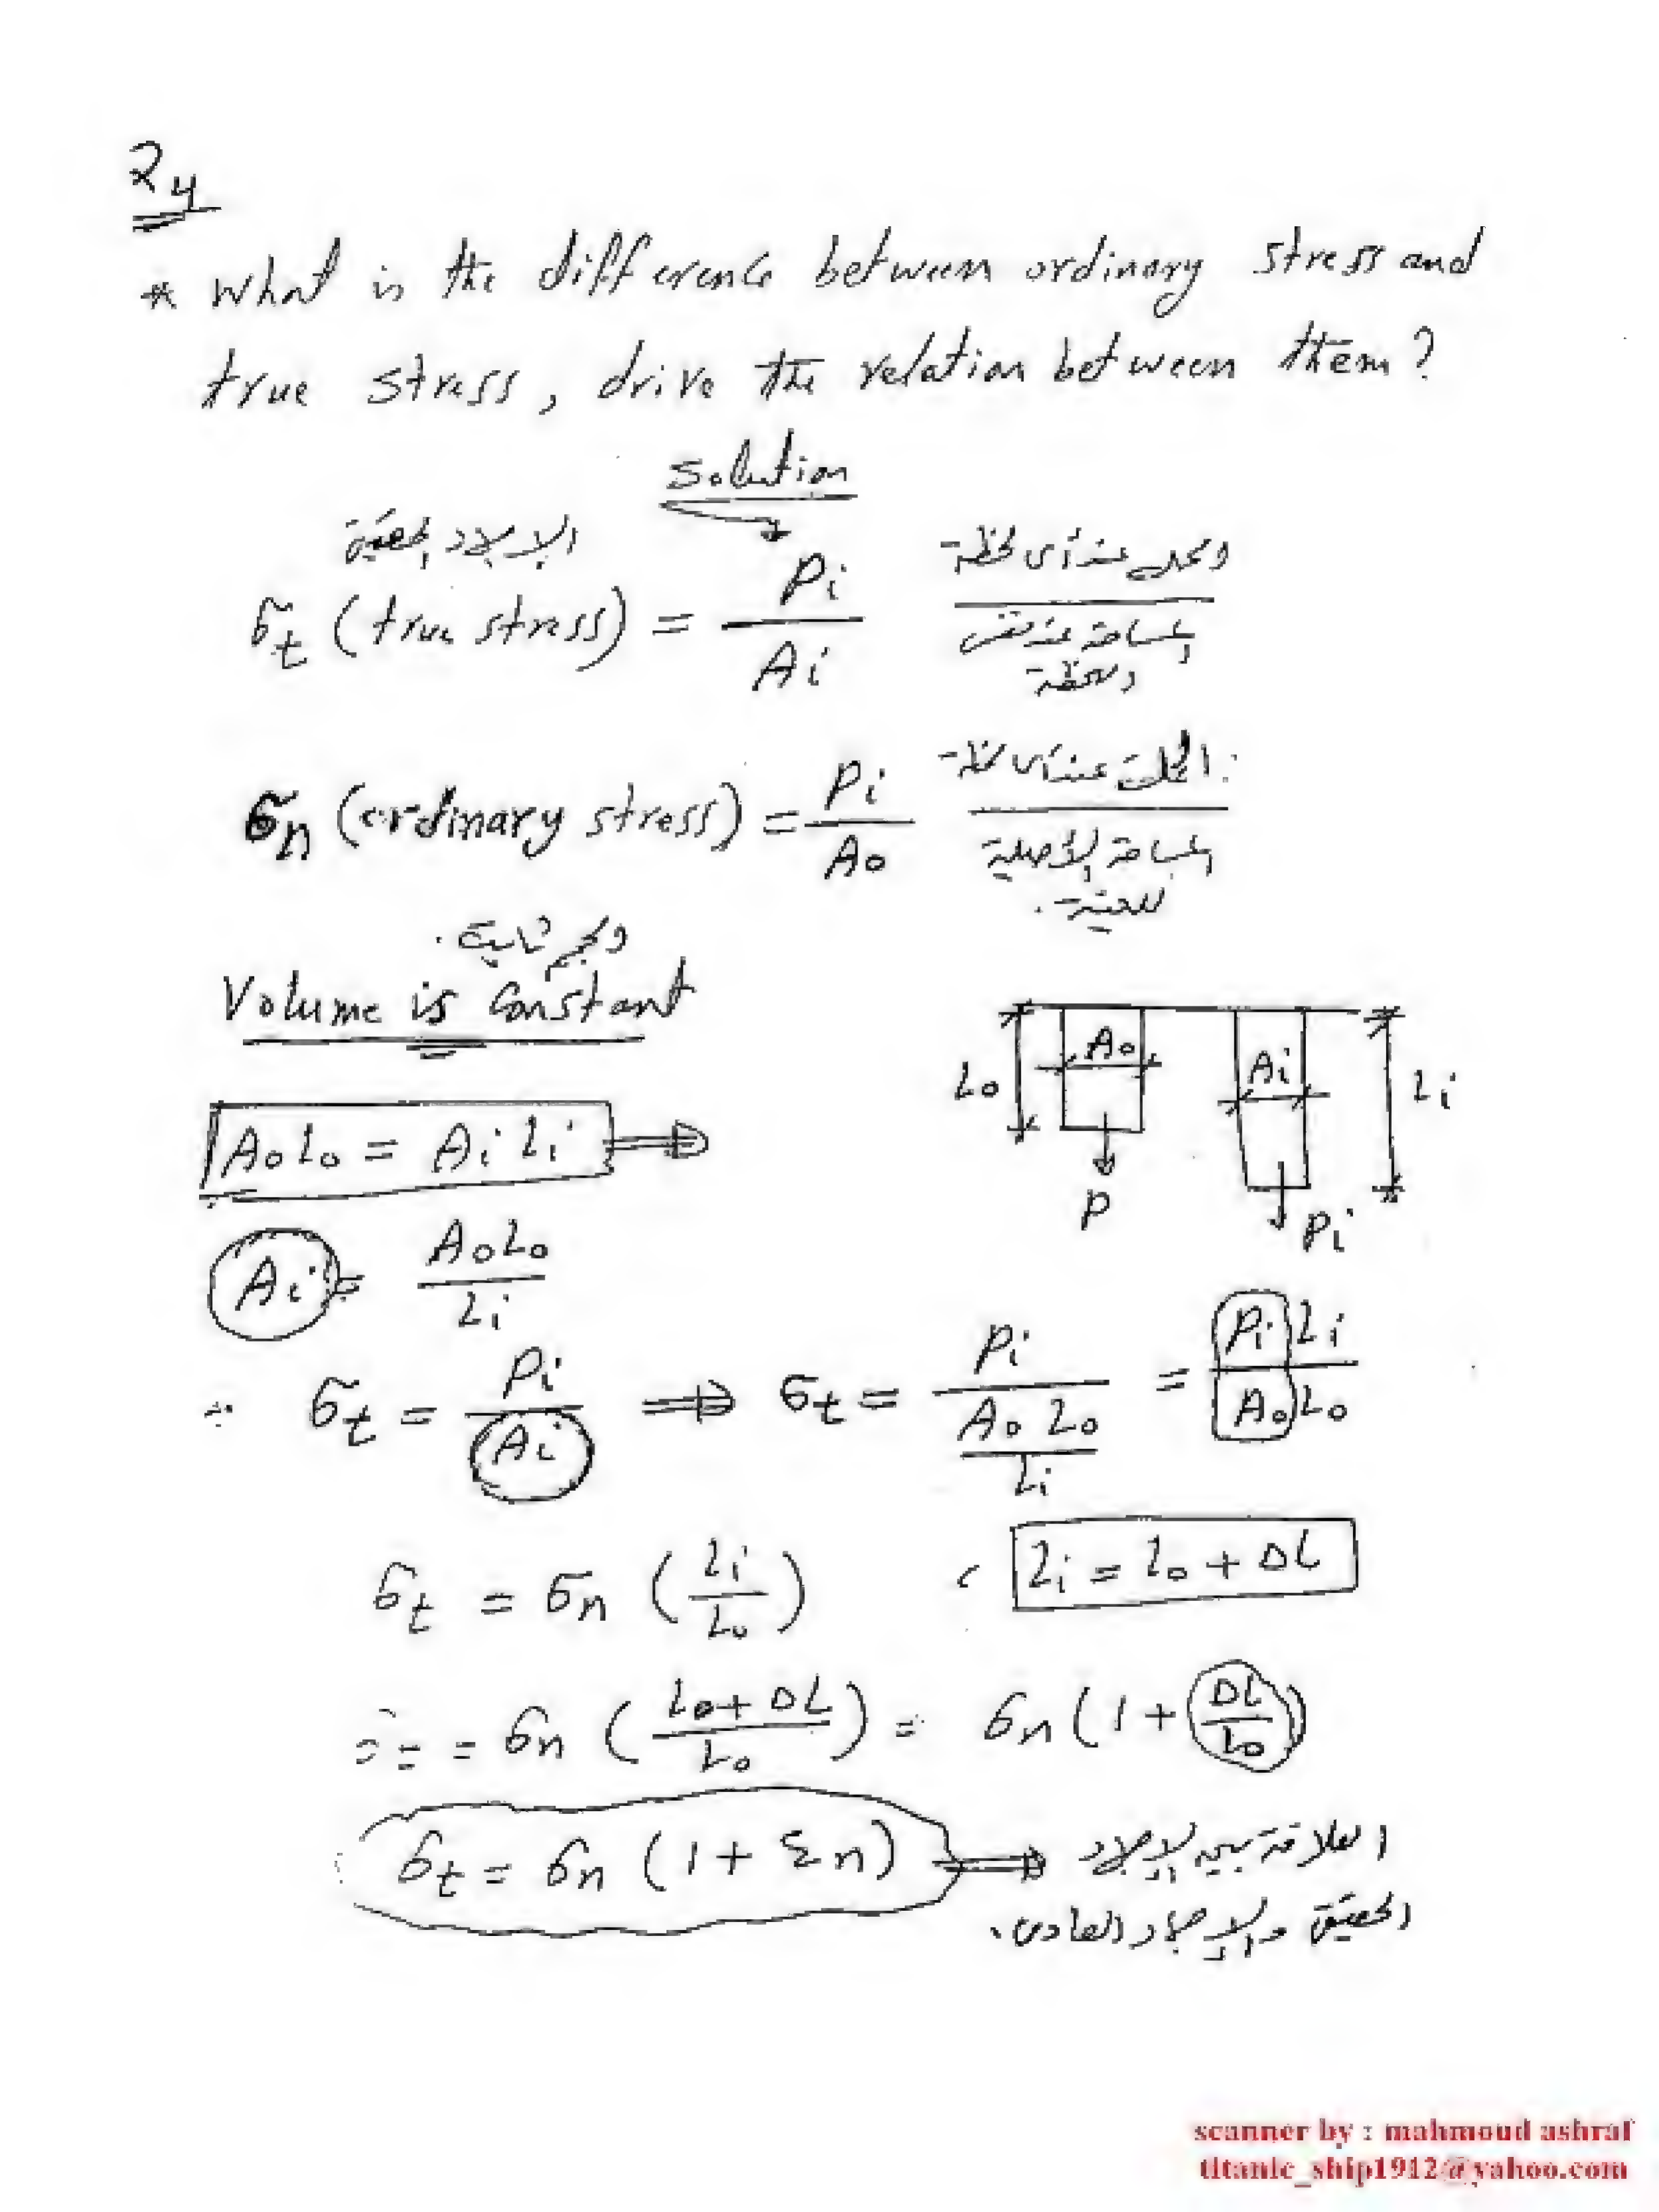 24
* What is the difference between ordinary stress and
true stress, drive the relation between them?
Solution
الإجهاد الحقيقى
σt (true stress) = Pi / Ai
الحمل عند أى لحظة
المساحة عند نفس
اللحظة
σn (ordinary stress) = Pi / Ao
الحمل عند أى لحظة
المساحة الأصلية
للعينة.
الحجم ثابت.
Volume is Constant
Ao Lo = Ai Li
Lo Ao Ai Li
P Pi
Ai = Ao Lo / Li
∴ σt = Pi / Ai ⇒ σt = Pi / (Ao Lo / Li) = Pi Li / Ao Lo
σt = σn (Li / Lo) , Li = Lo + ΔL
∴ = = σn (Lo + ΔL / Lo) = σn (1 + ΔL / Lo)
σt = σn (1 + εn) ⇒ العلاقة بين الإجهاد
الحقيقى والإجهاد العادى.
scanner by : mahmoud ashraf
titanic_ship1912@yahoo.com